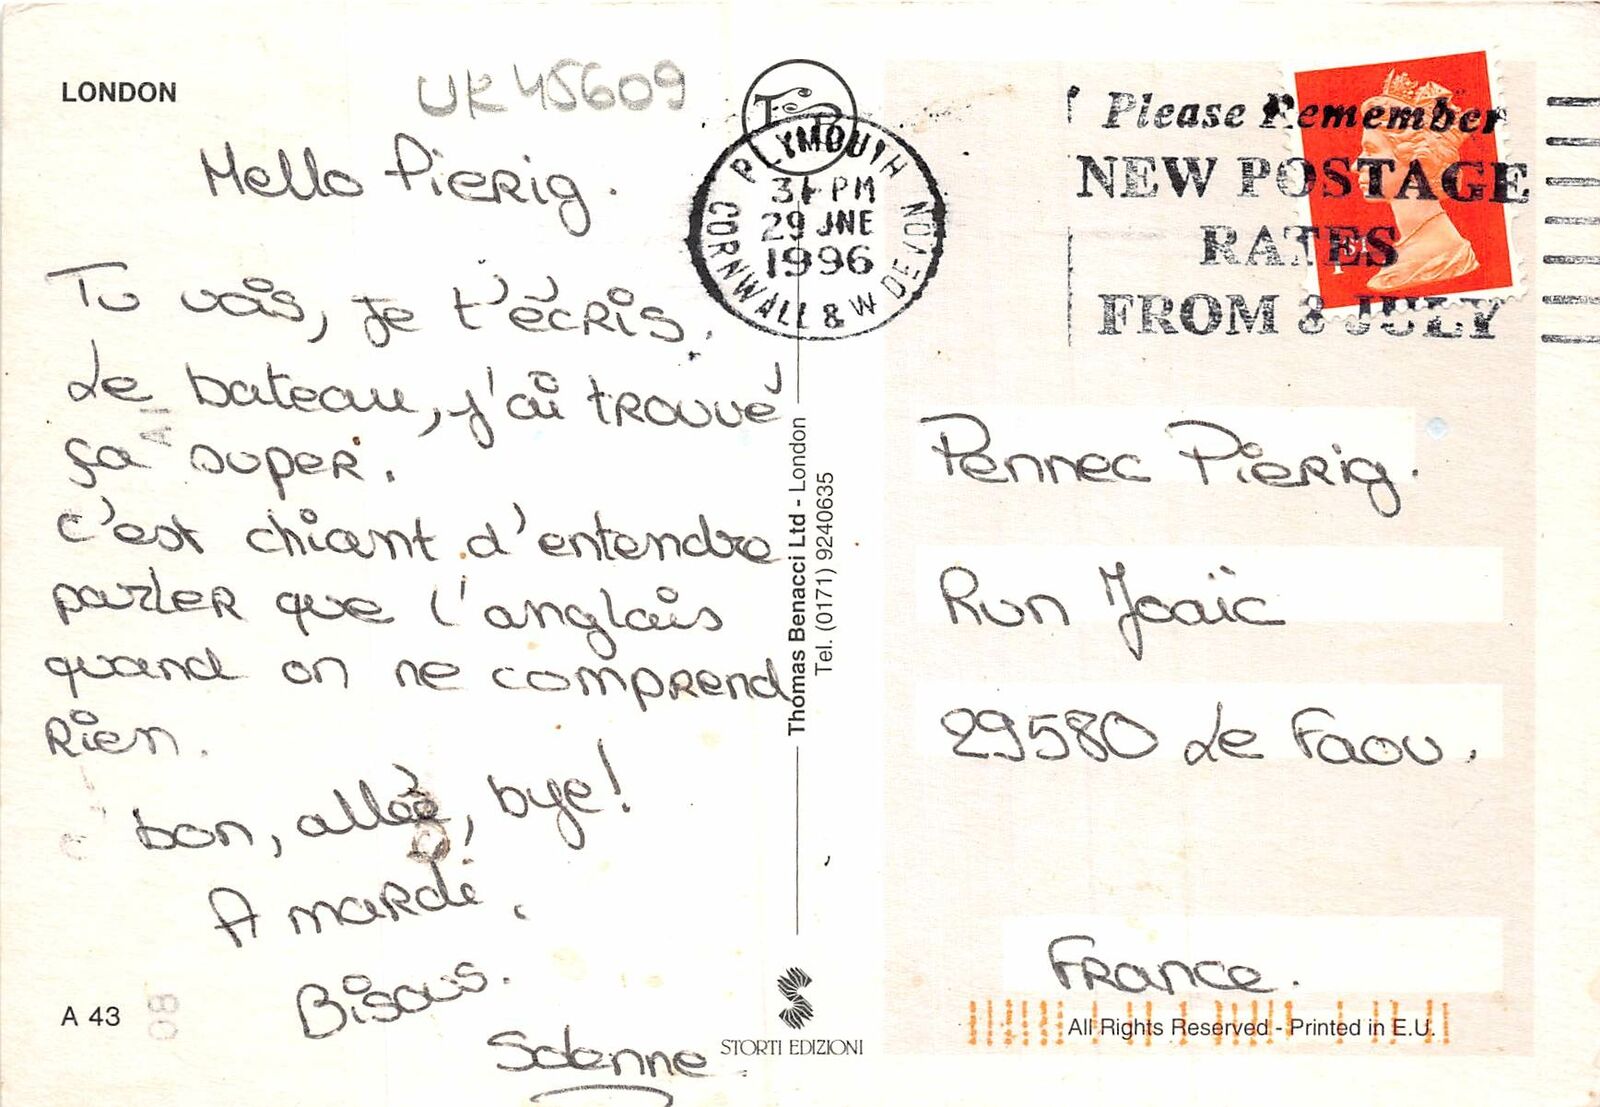 LONDON
UK45609
Hello Pierig.
Tu vois, je t'écris.
Le bateau, j'ai trouvé
ça super.
c'est chiant d'entendre
parler que l'anglais
quand on ne comprend
Rien.
bon, allée, bye!
A mardi.
Bisous.
Solenne
A 43
08
Thomas Benacci Ltd - London
Tel. (0171) 9240635
STORTI EDIZIONI
PLYMOUTH
PM
29 JNE
1996
CORNWALL & W DEVON
Please Remember
NEW POSTAGE
RATES
FROM 8 JULY
1ST
Pennec Pierig.
Run Joaïc
29580 Le Faou.
France.
All Rights Reserved - Printed in E.U.